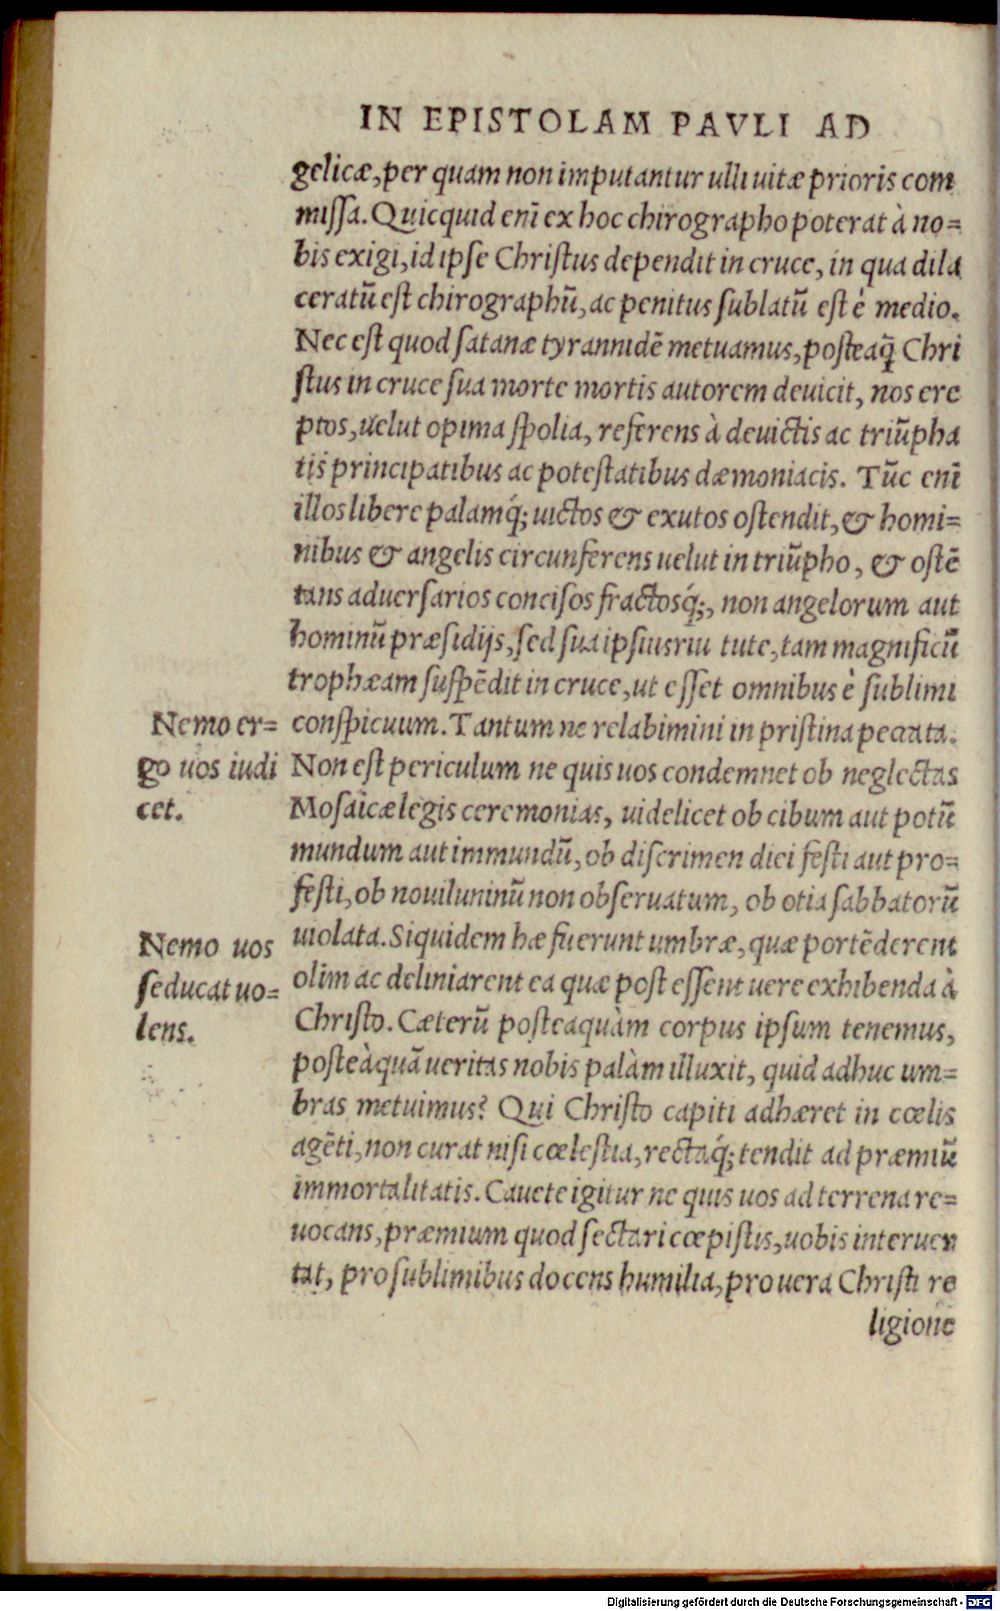 IN EPISTOLAM PAVLI AD
gelicæ, per quam non imputantur ulli uitæ prioris com
missa. Quicquid enĩ ex hoc chirographo poterat à no=
bis exigi, id ipse Christus dependit in cruce, in qua dila
ceratũ est chirographũ, ac penitus sublatũ est è medio.
Nec est quod satanæ tyrannidẽ metuamus, posteaq̃ Chri
stus in cruce sua morte mortis autorem deuicit, nos ere
ptos, uelut opima spolia, referens à deuictis ac triũpha
tis principatibus ac potestatibus dæmoniacis. Tũc enĩ
illos libere palamq́; uictos & exutos ostendit, & homi=
nibus & angelis circunferens uelut in triũpho, & ostẽ
tans aduersarios concisos fractosq́;, non angelorum aut
hominũ præsidijs, sed sua ipsiusriu tute, tam magnificũ
trophæam suspẽdit in cruce, ut esset omnibus è sublimi
Nemo er=
go uos iudi
cet.
conspicuum. Tantum ne relabimini in pristina peccata.
Non est periculum ne quis uos condemnet ob neglectas
Mosaicæ legis ceremonias, uidelicet ob cibum aut potũ
mundum aut immundũ, ob discrimen diei festi aut pro=
festi, ob nouiluninũ non obseruatum, ob otia sabbatorũ
Nemo uos
seducat uo=
lens.
uiolata. Siquidem hæ fuerunt umbræ, quæ portẽderent
olim ac deliniarent ea quæ post essent uere exhibenda à
Christo. Cæterũ posteaquàm corpus ipsum tenemus,
posteàquã ueritas nobis palàm illuxit, quid adhuc um=
bras metuimus? Qui Christo capiti adhæret in cœlis
agẽti, non curat nisi cœlestia, rectaq́; tendit ad præmiũ
immortalitatis. Cauete igitur ne quis uos ad terrena re=
uocans, præmium quod sectari cœpistis, uobis interuer
tat, pro sublimibus docens humilia, pro uera Christi re
ligione
Digitalisierung gefördert durch die Deutsche Forschungsgemeinschaft - DFG